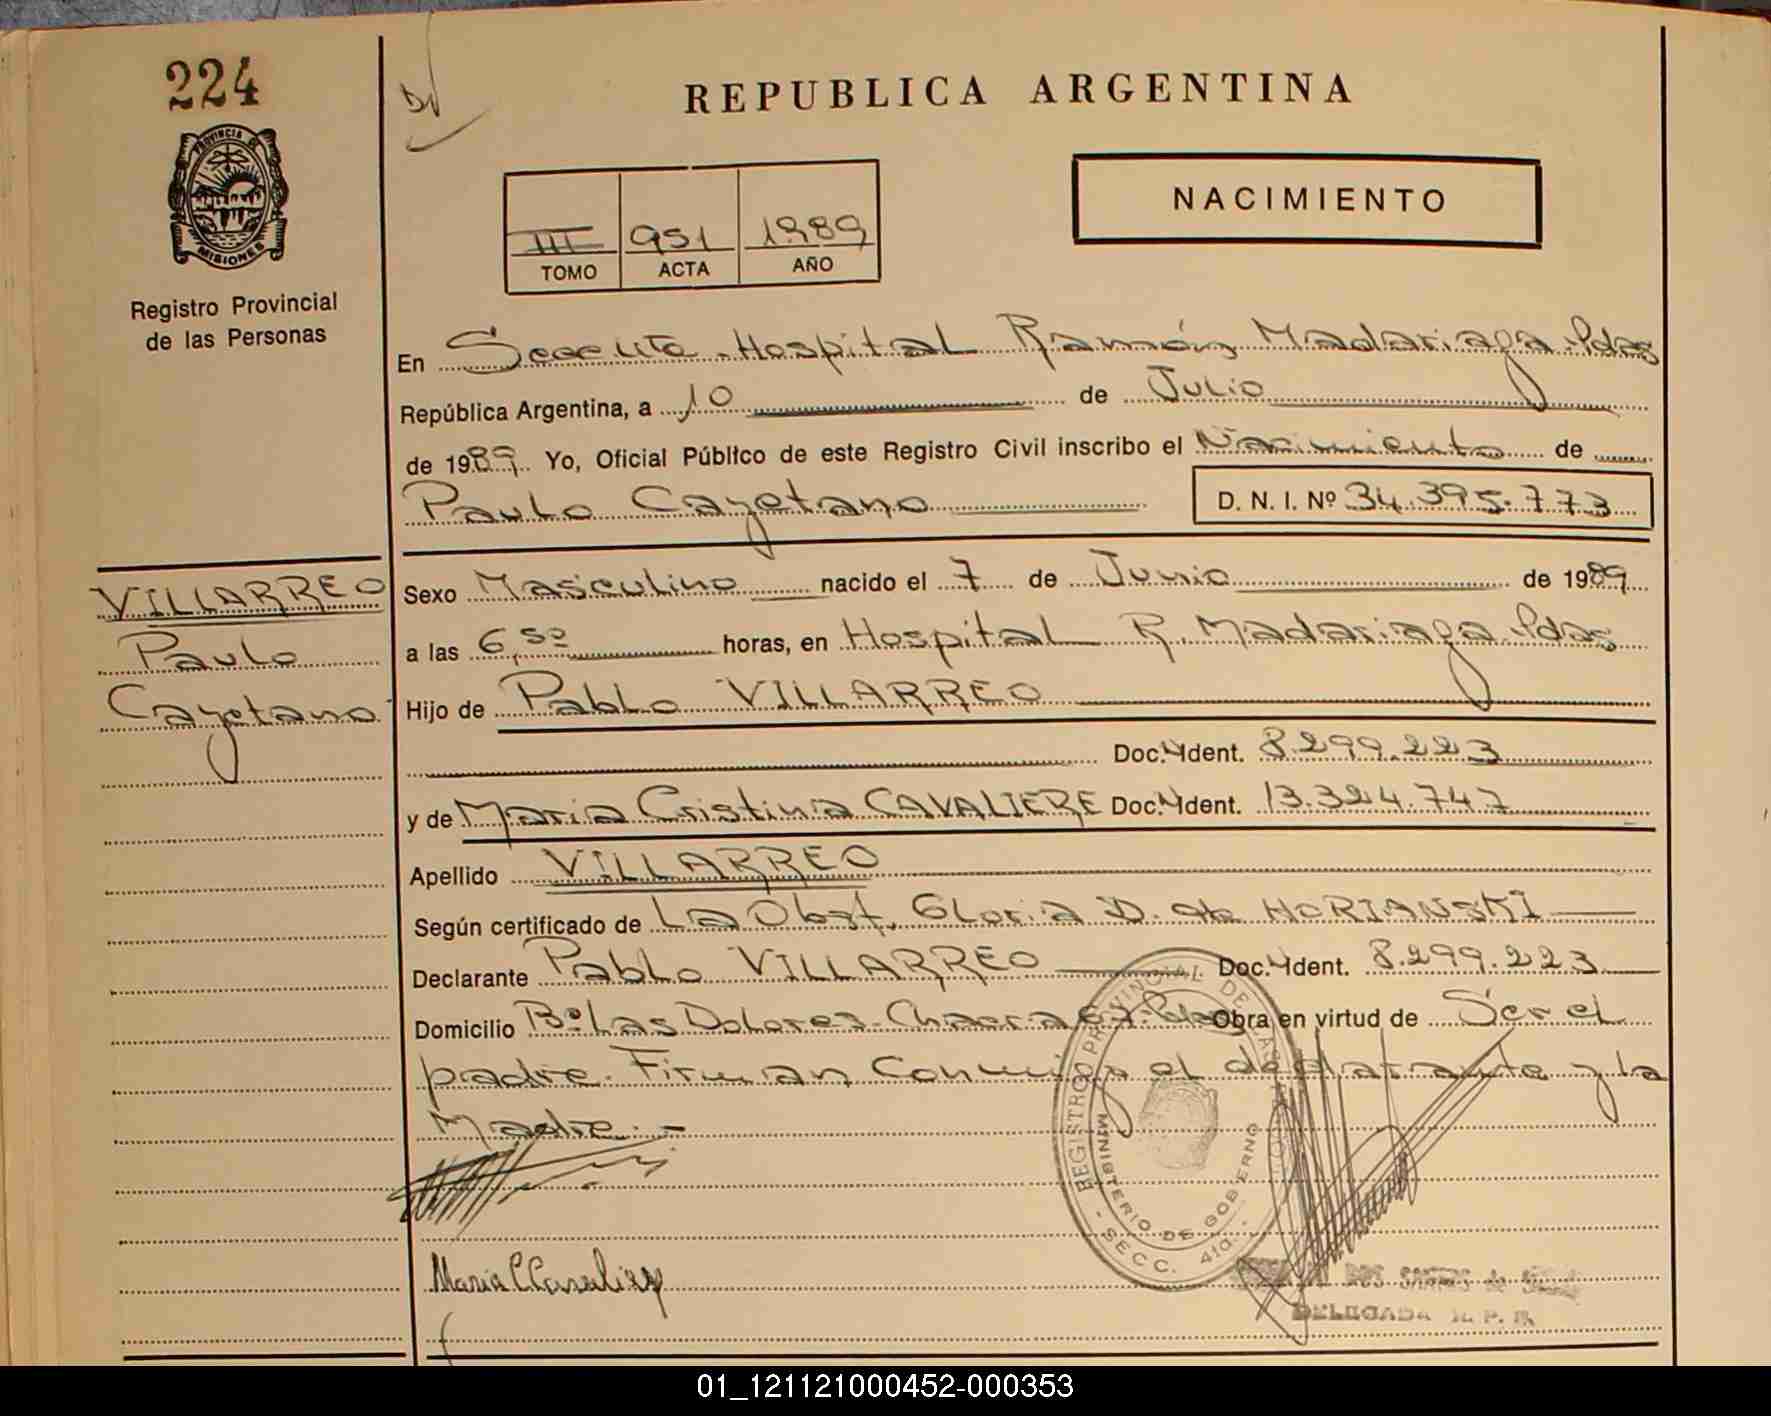 224
PROVINCIA DE
MISIONES
Registro Provincial
de las Personas
REPUBLICA ARGENTINA
NACIMIENTO
III 951 1989
TOMO ACTA AÑO
En Seccuta. Hospital Ramón Madariaga. Pdas
República Argentina, a 10 de Julio
de 1989. Yo, Oficial Público de este Registro Civil inscribo el Nacimiento de
Paulo Cayetano D. N. I. Nº 34.395.773
VILLARREO
Paulo
Cayetano
Sexo Masculino nacido el 7 de Junio de 1989
a las 6,50 horas, en Hospital R. Madariaga. Pdas
Hijo de Pablo VILLARREO
Doc. Ident. 8.299.223
y de Maria Cristina CAVALIERE Doc. Ident. 13.324.747
Apellido VILLARREO
Según certificado de La Obst. Gloria D. de HORIANSKI
Declarante Pablo VILLARREO Doc. Ident. 8.299.223
Domicilio Bº Las Dolores. Chacra 67. Pdas Obra en virtud de Ser el
padre. Firman Conmigo el declarante y la
Madre.-
REGISTRO PROVINCIAL DE LAS
MINISTERIO DE GOBIERNO
- SECC. 4ta. -
Maria C Cavaliere
DOS SANTOS de
DELEGADA R. P. P.
01_121121000452-000353